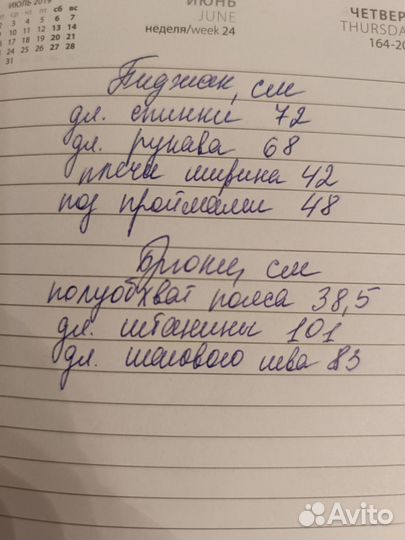 ИЮЛЬ 2019
ИЮНЬ
JUNE
неделя/week 24
ЧЕТВЕР
THURSDA
164-20
ср чт пт сб вс
3 4 5 6 7
10 11 12 13 14
17 18 19 20 21
24 25 26 27 28
31
Пиджак, см
дл. спинки 72
дл. рукава 68
плечи ширина 42
под проймами 48
Брюки, см
полуобхват пояса 38,5
дл. штанины 101
дл. шагового шва 83
Avito